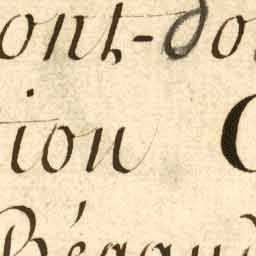 ont-do
tion C
Bégaud